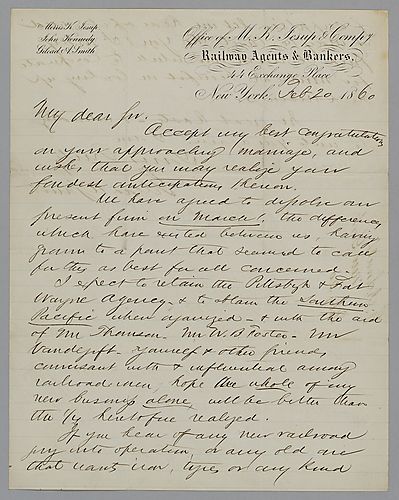 Morris K. Jesup
John Kennedy
Gilead A. Smith
Office of M. K. Jesup & Compy
Railway Agents & Bankers,
44 Exchange Place
New York, Feb 20 1860
My dear Sir.
Accept my best congratulations
on your approaching marriage, and
wishes that you may realize your
fondest anticipations thereon.
We have agreed to dissolve our
present firm on March 1, the differences
which have existed between us, having
grown to a point that seemed to call
for this as best for all concerned.
I expect to retain the Pittsbgh & Fort
Wayne Agency - & to obtain the Southern
Pacific when organized - & with the aid
of Mr Thomson - Mr W. B Foster - Mr
yourself & other friends
conversant with & influential among
railroad men, hope the whole of my
new business alone, will be better than
the heretofore realized.
If you hear of any new railroad
into operation, or any old one
that wants iron, types or any kind